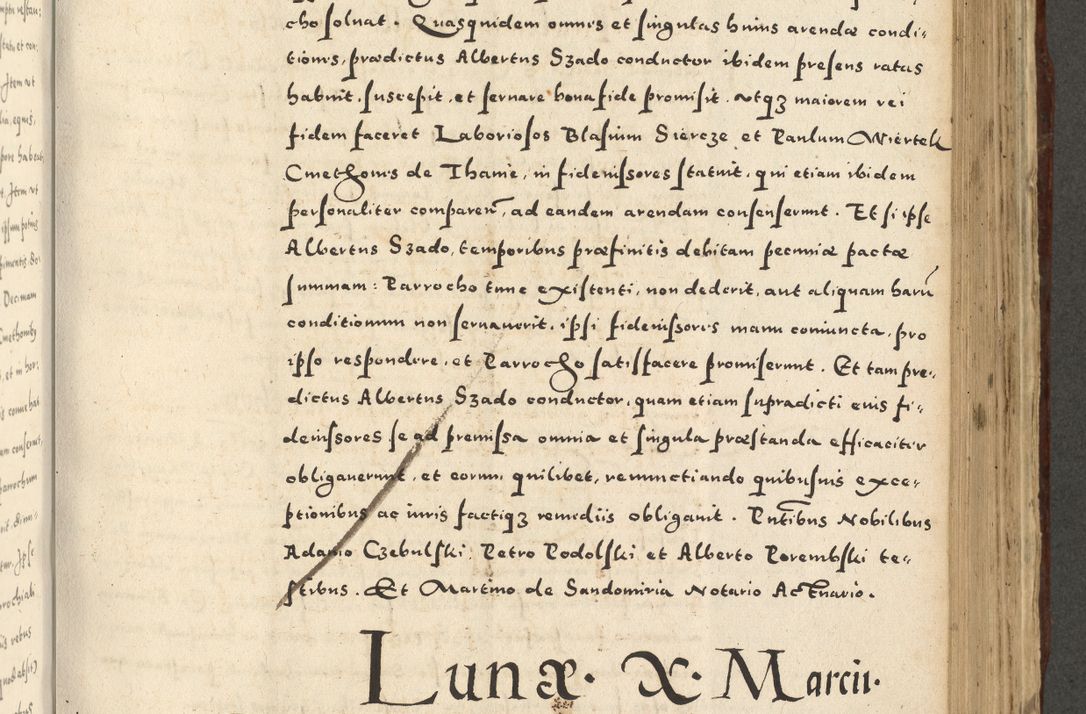 cho soluat. Quasquidem omnes et singulas huius arendæ condi-
tiones, prædictus Albertus Szado conductor ibidem presens ratas
habuit, suscepit, et seruare bona fide promisit. Atq3 maiorem rei
fidem faceret Laboriosos Blasium Siercze et Paulum Wiertek
Cmethones de Thanie, in fideiussores statuit, qui etiam ibidem
personaliter comparen̄, ad eandem arendam consenserunt. Et si ipse
Albertus Szado, temporibus præfinitis debitam pecuniæ pactæ
summam: Parrocho tunc existenti, non dederit, aut aliquam harū
conditionum non seruauerit, ipsi fideiussores manu coniuncta, pro
ipso respondere, et Parrocho satisfacere promiserunt. Et tam pre-
dictus Albertus Szado conductor, quam etiam supradicti eius fi-
deiussores se ad premissa omnia et singula præstanda efficaciter
obligauerunt, et eorum quilibet, renunctiando quibusuis exce-
ptionibus ac iuris factiq3 remediis obligauit. Pn̄tibus Nobilibus
Adamo Czebulski, Petro Podolski et Alberto Porembski te-
stibus. Et Martino de Sandomiria Notario Actuario.
Lunæ. X. Marcii.